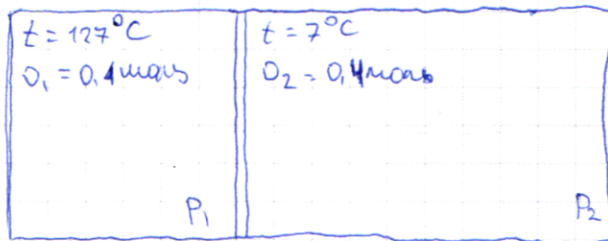 t = 127°C
υ₁ = 0,1 моль
P₁
t = 7°C
υ₂ = 0,4 моль
P₂